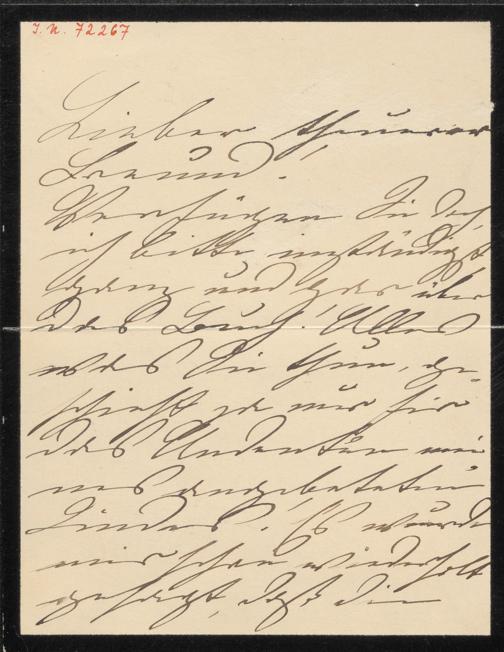 J. N. 72267
Lieber theuerer
Freund!
Verfügen Sie doch
ich bitte inständigst
ganz und gar über
das Buch! Alles
was Sie thun, ge-
schieht ja nur für
das Andenken mei-
nes angebeteten
Kindes. Es wurde
mir schon wiederholt
gesagt, daß die